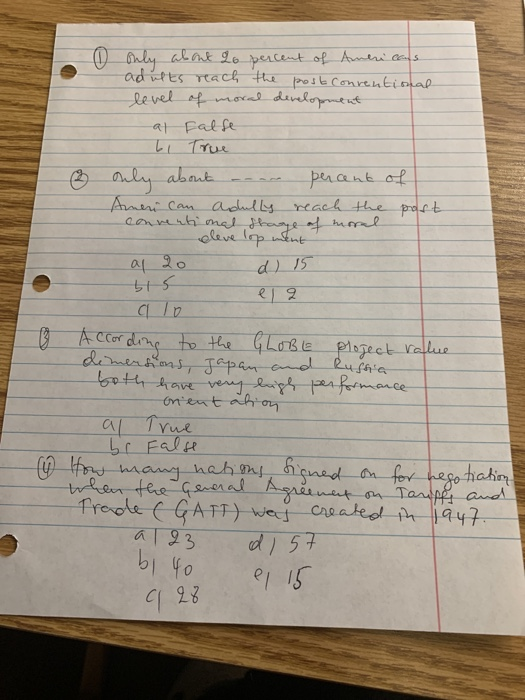 ① only about 20 percent of Americans
adults reach the postconventional
level of moral development
a) False
b) True
② only about ---- percent of
American adults reach the post
conventional stage of moral
development
a) 20 d) 15
b) 5 e) 2
c) 10
③ According to the GLOBE project value
dimensions, Japan and Russia
both have very high performance
orientation
a) True
b) False
④ How many nations signed on for negotiation
when the General Agreement on Tariffs and
Trade (GATT) was created in 1947.
a) 23 d) 57
b) 40 e) 15
c) 28